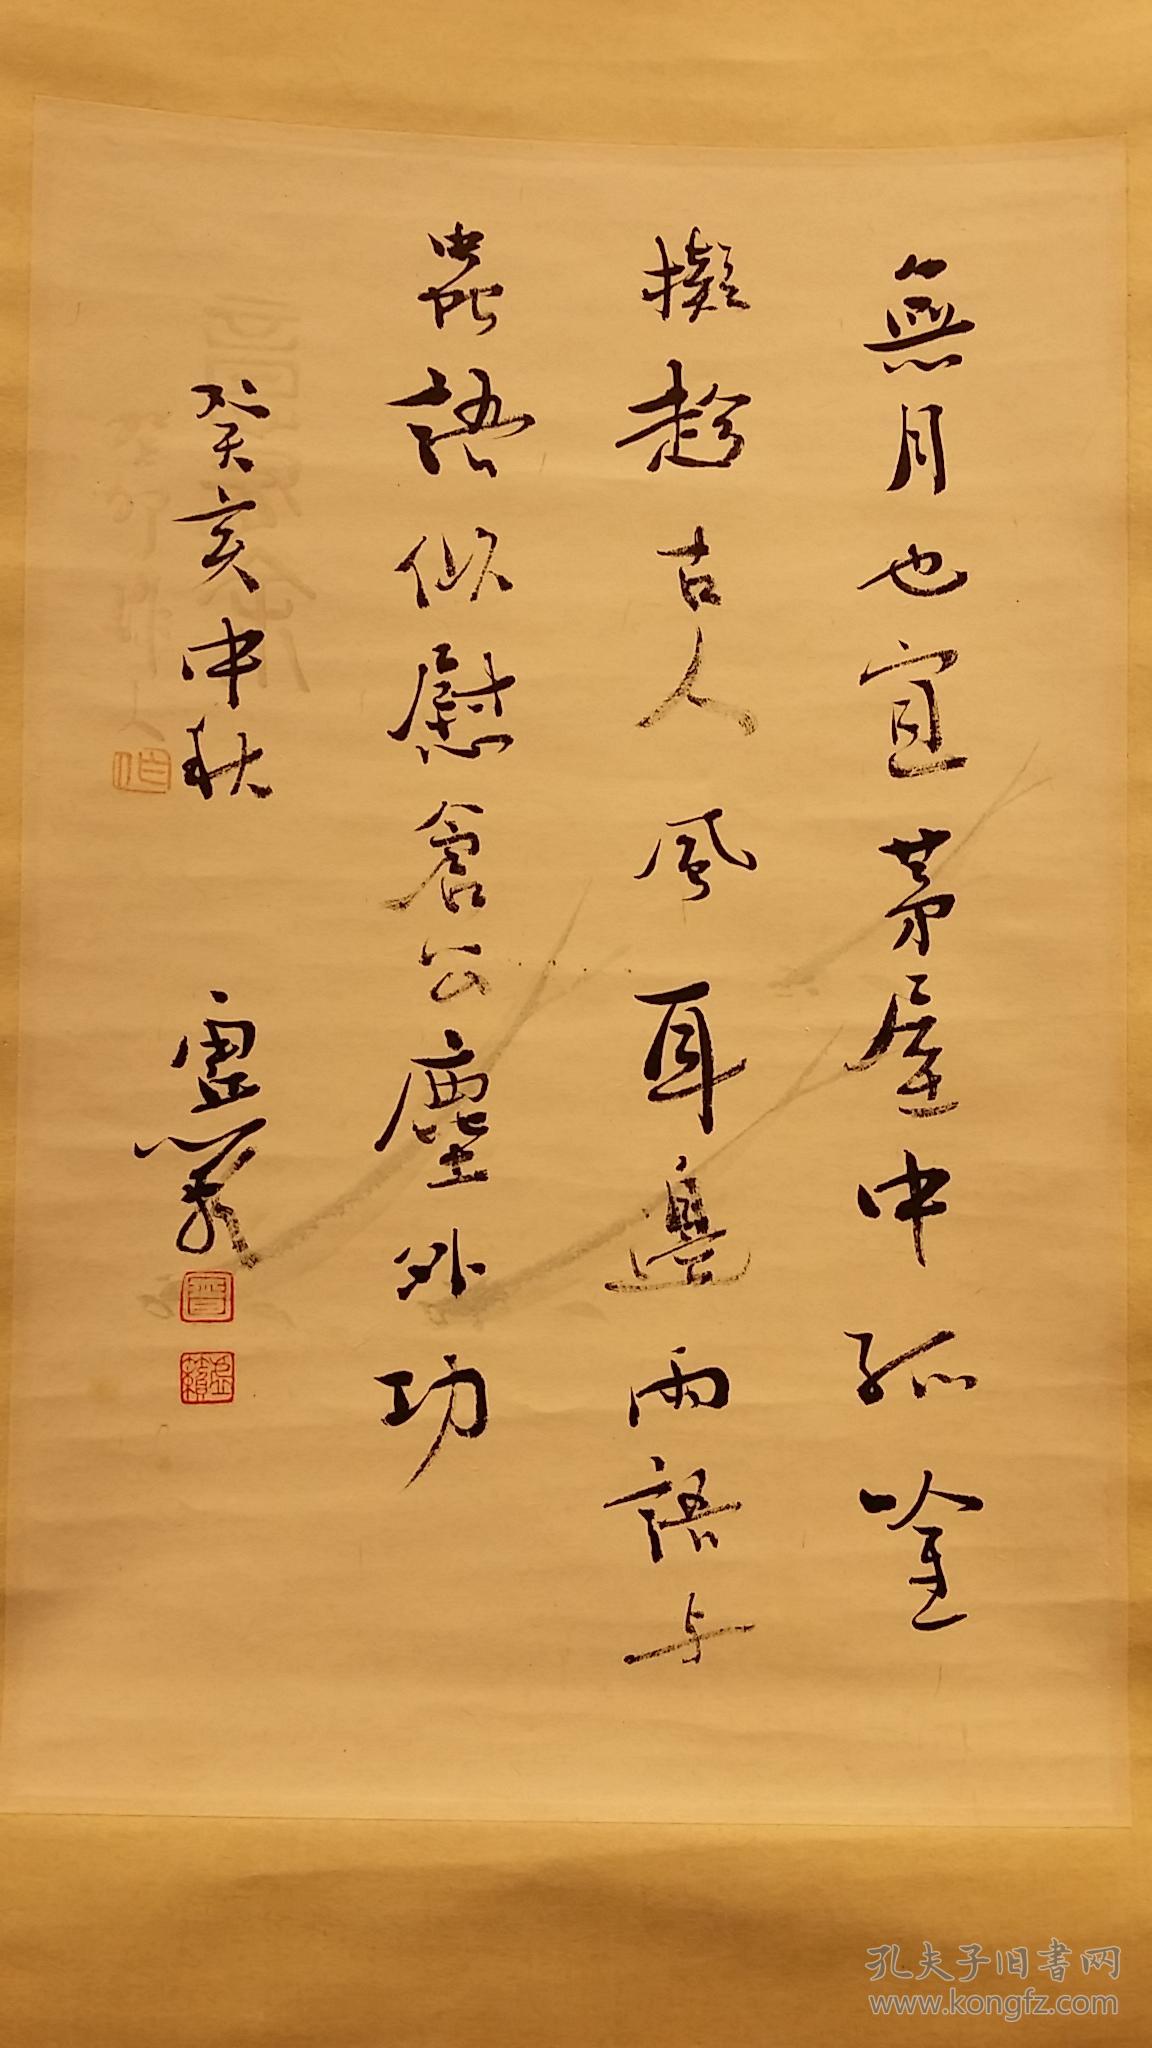 無月也宜茅屋中孤堂
擬趁古人風耳邊雨語与
蟲語似慰倉公塵外功
癸亥中秋
虛
孔夫子旧書网
www.kongfz.com